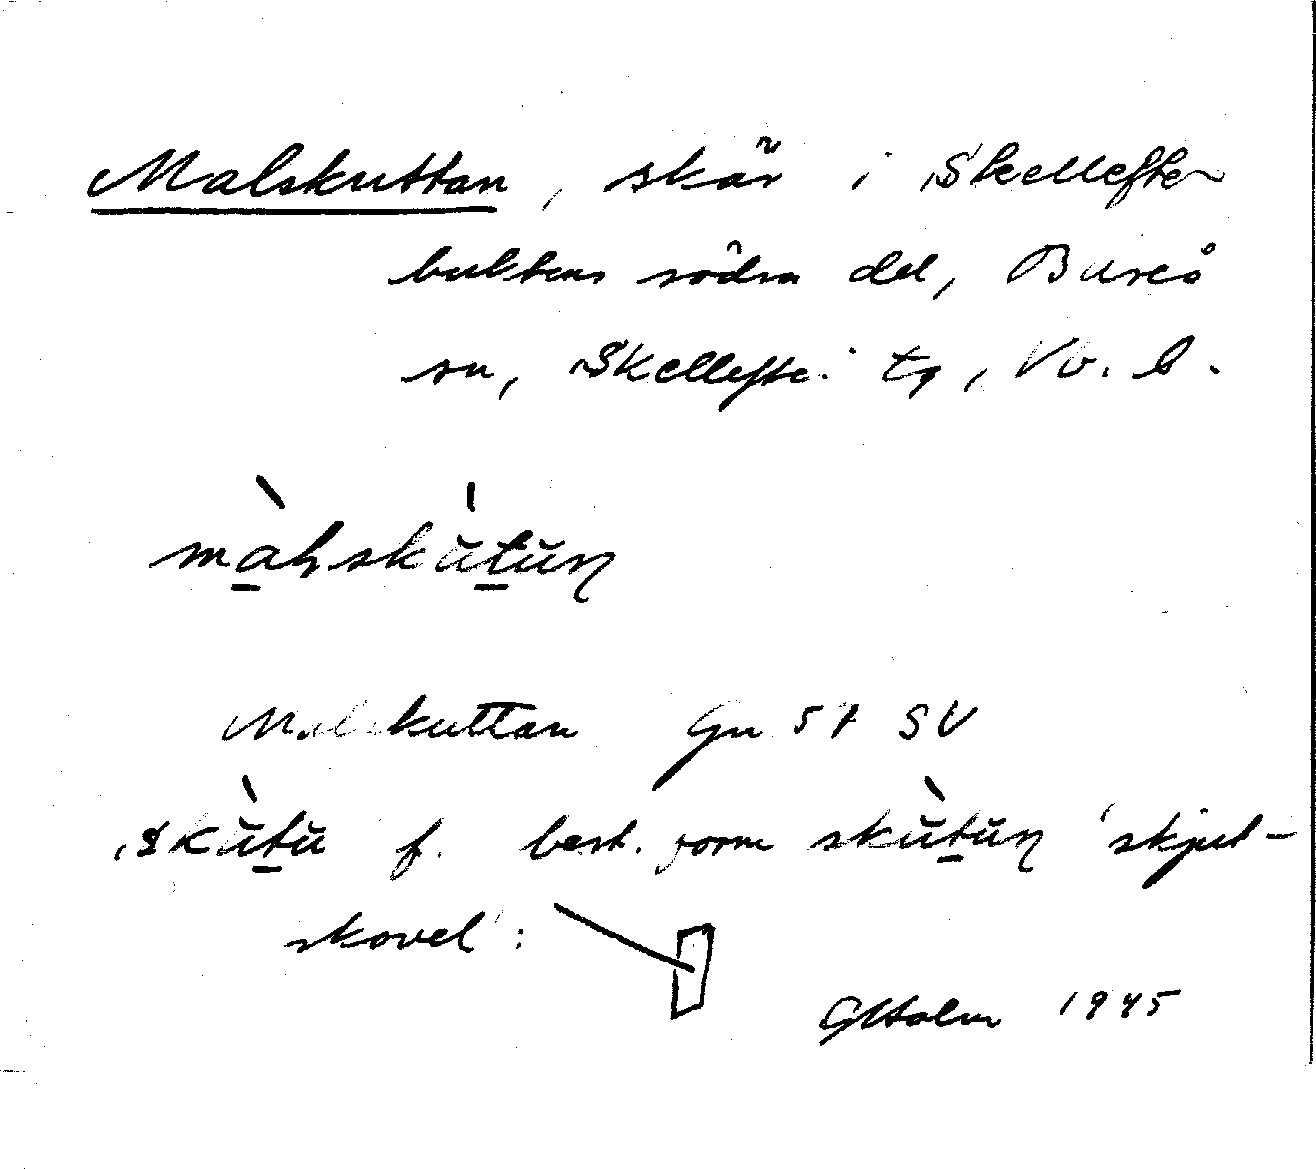 Malskuttan, skär i Skellefte-
buktens södra del, Bureå
sn, Skellefte tg, Vb. l.
màhskùtŭn
Malskuttan Gn 57 SV
skùtŭ f. best. form skùtŭn 'skjut-
skovel':
GHolm 1945